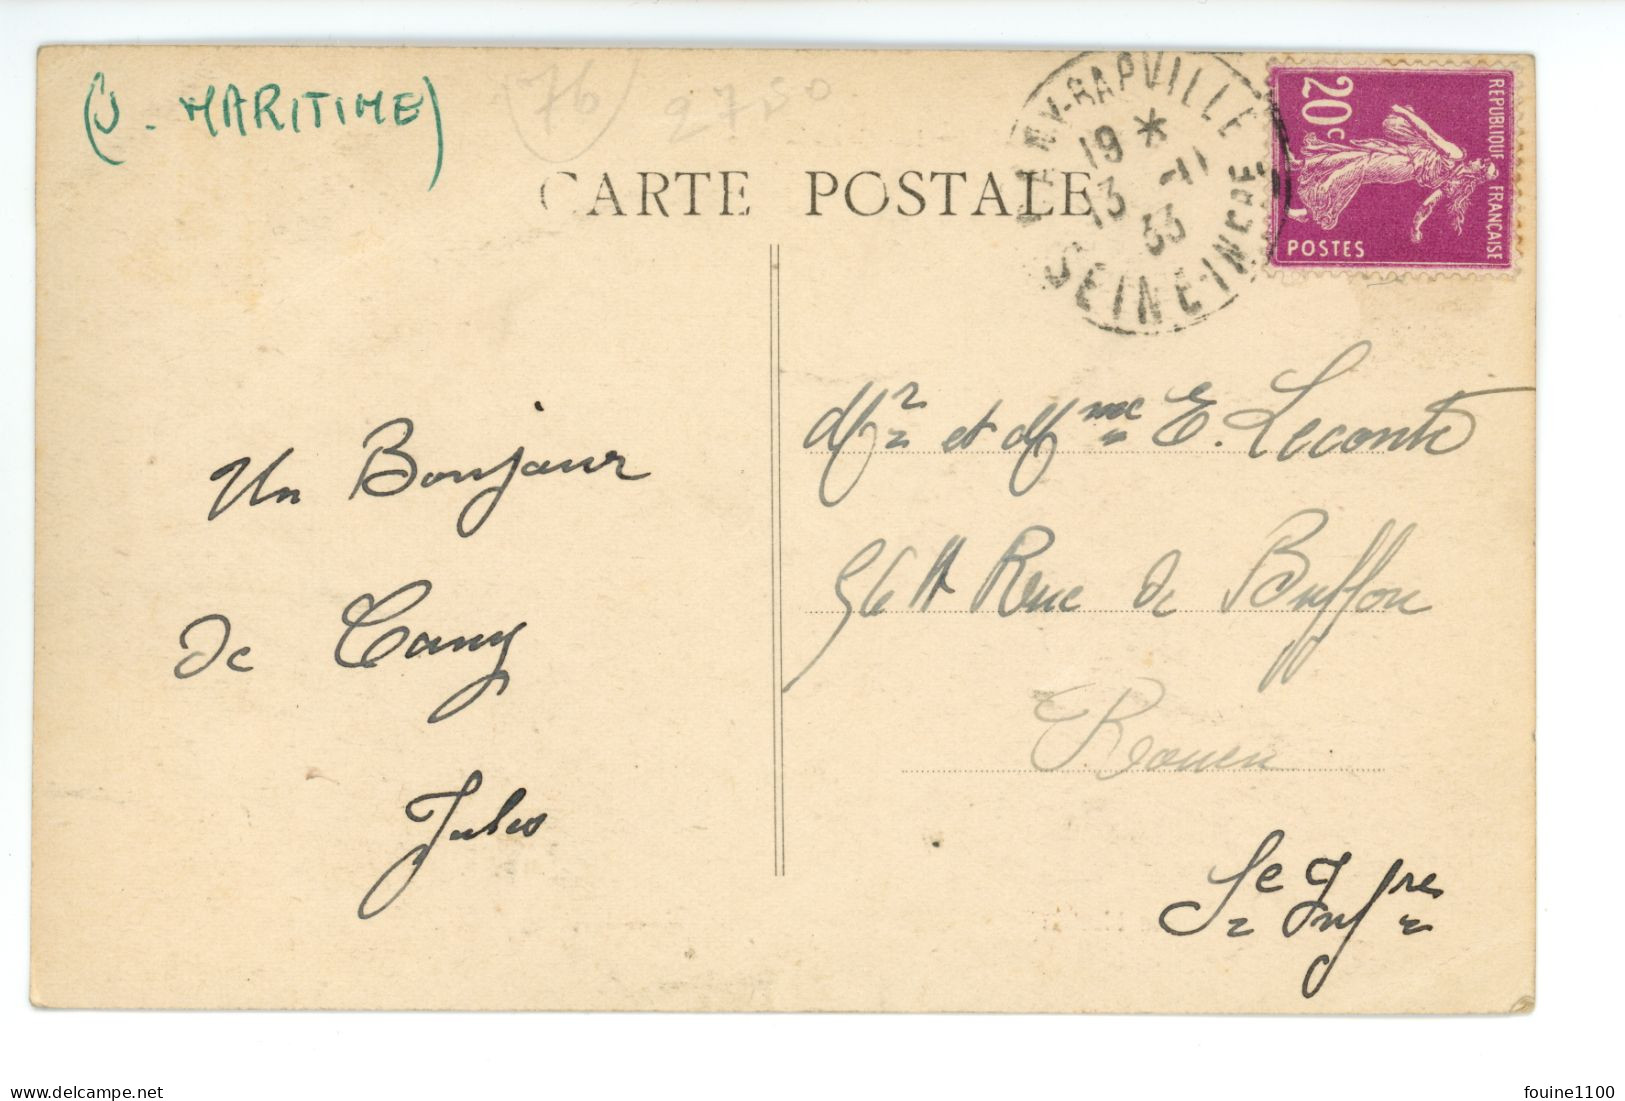 (J. MARITIME)
76
27,50
CARTE POSTALE
CANY-BARVILLE
19 *
13 -11
33
SEINE-INFRE
REPUBLIQUE FRANÇAISE
20c
POSTES
Un Bonjour
de Cany
Jules
Mr et Mme E. Leconte
56 Rue de Buffon
Rouen
Se Infres
delcampe.net
fouine1100